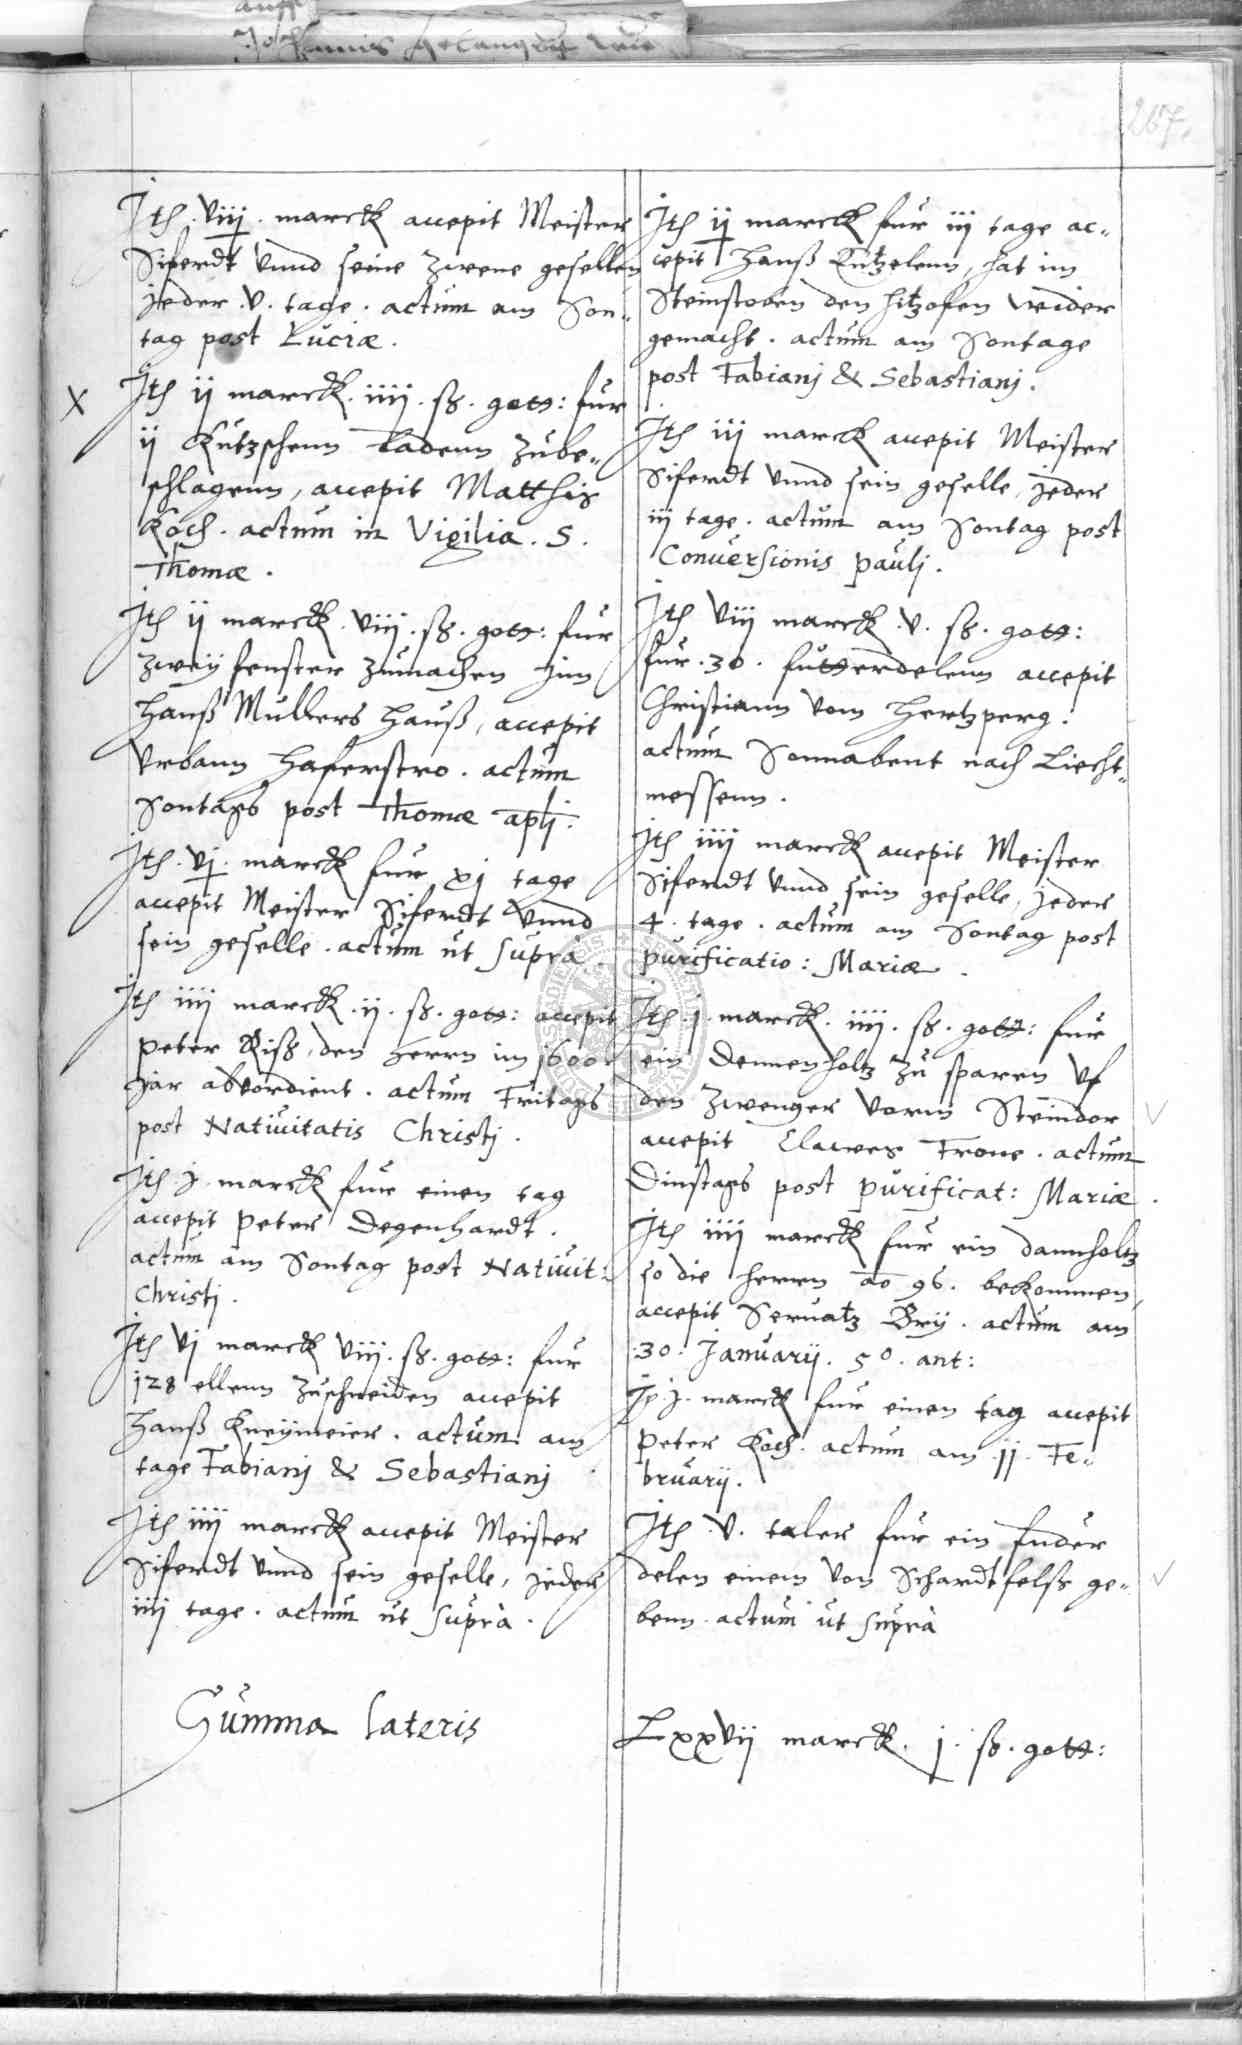 267.
Ite. viij. marck accepit Meister
Siferdt vnnd seine zwene gesellen
jeder v. tage. actum am Son„
tag post Luciæ.
X Ite ij marck. iiij. ß. gott: fur
ij Kutzschenn ladenn zube„
schlagenn, accepit Matthis
Koch. actum in Vigilia. S.
Thomæ.
Ite ij marck. viij. ß. gott: fur
zweÿ fenster zumachen inn
Hanß Mullers Hauß, accepit
Vrbann Haferstro. actum
Sontags post Thomæ apli.
Ite. vj. marck fur xj tage
accepit Meister Siferdt vnnd
sein geselle. actum ut supra.
Ite iiij marck. ij. ß. gott: accepit
Peter Riß, den Herrn im 1600
Jar abverdient. actum Fritags
post Nativitatis Christj.
Ite. j. marck fur einen tag
accepit Peter Degenhardt.
actum am Sontag post Nativit:
Christj.
Ite vj marck viij. ß. gott: fur
128 ellenn zuschneiden accepit
Hanß Kneÿmeier. actum am
tage Fabianj & Sebastianj
Ite iiij marck accepit Meister
Siferdt vnnd sein geselle, jeder
iiij tage. actum ut supra.
Summa lateris
Ite ij marck fur iij tage ac„
cepit Hanß hat im
Steinstoben den hitzofen wider
gemacht. actum am Sontage
post Fabianj & Sebastianj.
Ite iij marck accepit Meister
Siferdt vnnd sein geselle, jeder
iij tage. actum am Sontag post
Conuersionis paulj.
Ite viij marck. v. ß. gott:
fur. 30. futterdelenn accepit
Christiann vom Hertzperg.
actum Sonnabent nach Liecht„
messenn.
Ite iiij marck accepit Meister
Siferdt vnnd sein geselle, jeder
4. tage. actum am Sontag post
purificatio: Mariæ.
Ite. j. marck. iiij. ß. gott: fur
ein Dennenholtz zu sparrn vf
den zwenger vorm Steindor
accepit Clawes Trone. actum
Dinstags post purificat: Mariæ.
Ite iiij marck fur ein dannholtz
so die herrn ao 96. bekommen,
accepit Servatz Brÿ. actum am
30. Januarij. 5º. ant:
Ite j. marck fur einen tag accepit
Peter Koch. actum am jj. Fe„
bruarij.
Ite. v. taler fur ein fuder
delen einem von Schardtfelß ge„
benn. actum ut supra
Lxxvij marck. j. ß. gott: